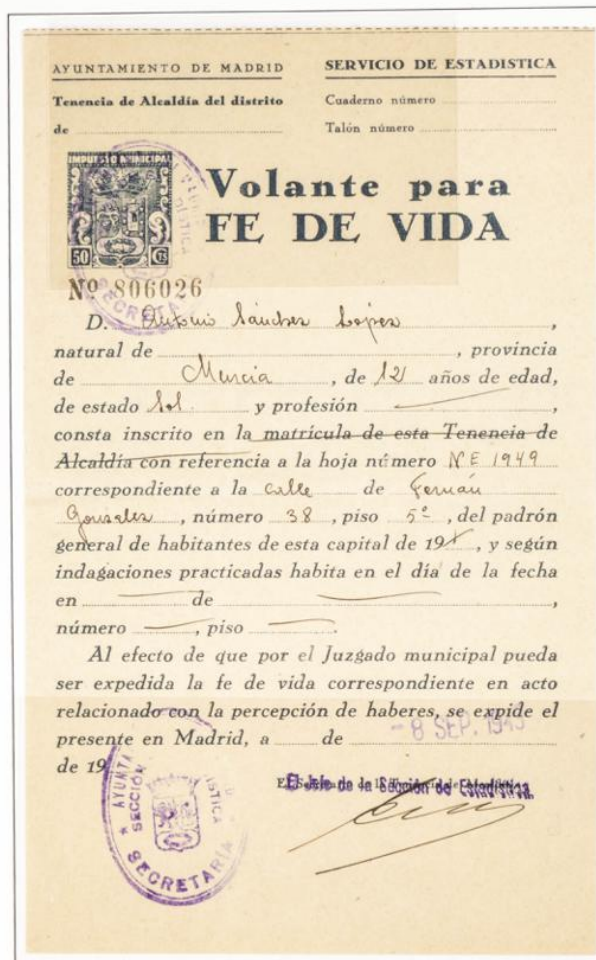 AYUNTAMIENTO DE MADRID
SERVICIO DE ESTADISTICA
Tenencia de Alcaldía del distrito
de
Cuaderno número
Talón número
IMPUESTO MUNICIPAL
50 Cts
Volante para
FE DE VIDA
Nº 806026
D. Antonio Sánchez López,
natural de , provincia
de Murcia, de 12 años de edad,
de estado Sol. y profesión ,
consta inscrito en la matrícula de esta Tenencia de
Alcaldía con referencia a la hoja número NE 1949
correspondiente a la calle de Fernán
Gonzalez, número 38, piso 5º, del padrón
general de habitantes de esta capital de 19 , y según
indagaciones practicadas habita en el día de la fecha
en de ,
número , piso .
Al efecto de que por el Juzgado municipal pueda
ser expedida la fe de vida correspondiente en acto
relacionado con la percepción de haberes, se expide el
presente en Madrid, a de
-8 SEP. 1949
de 19
El Jefe de la Sección de Estadística.
SECCIÓN
SECRETARÍA